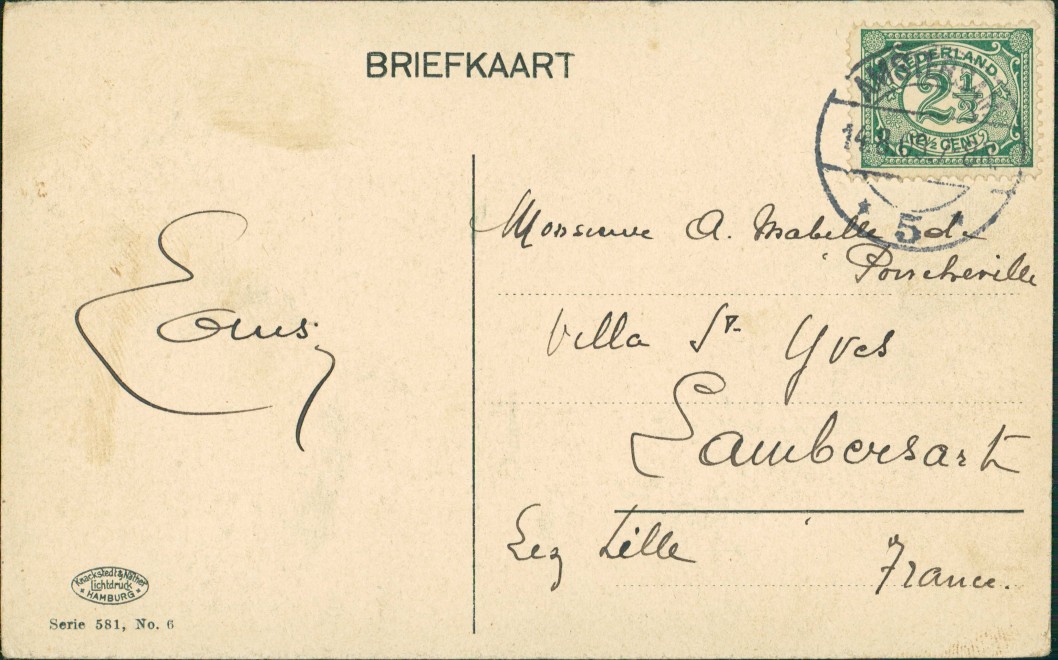 BRIEFKAART
NEDERLAND
2½
2½ CENT
14.8
5
Monsieur A. Mabille de
Poncheville
Villa St Yves
Lambersart
Lez Lille
France.
Louis
Knackstedt & Näther
Lichtdruck
HAMBURG
Serie 581, No. 6